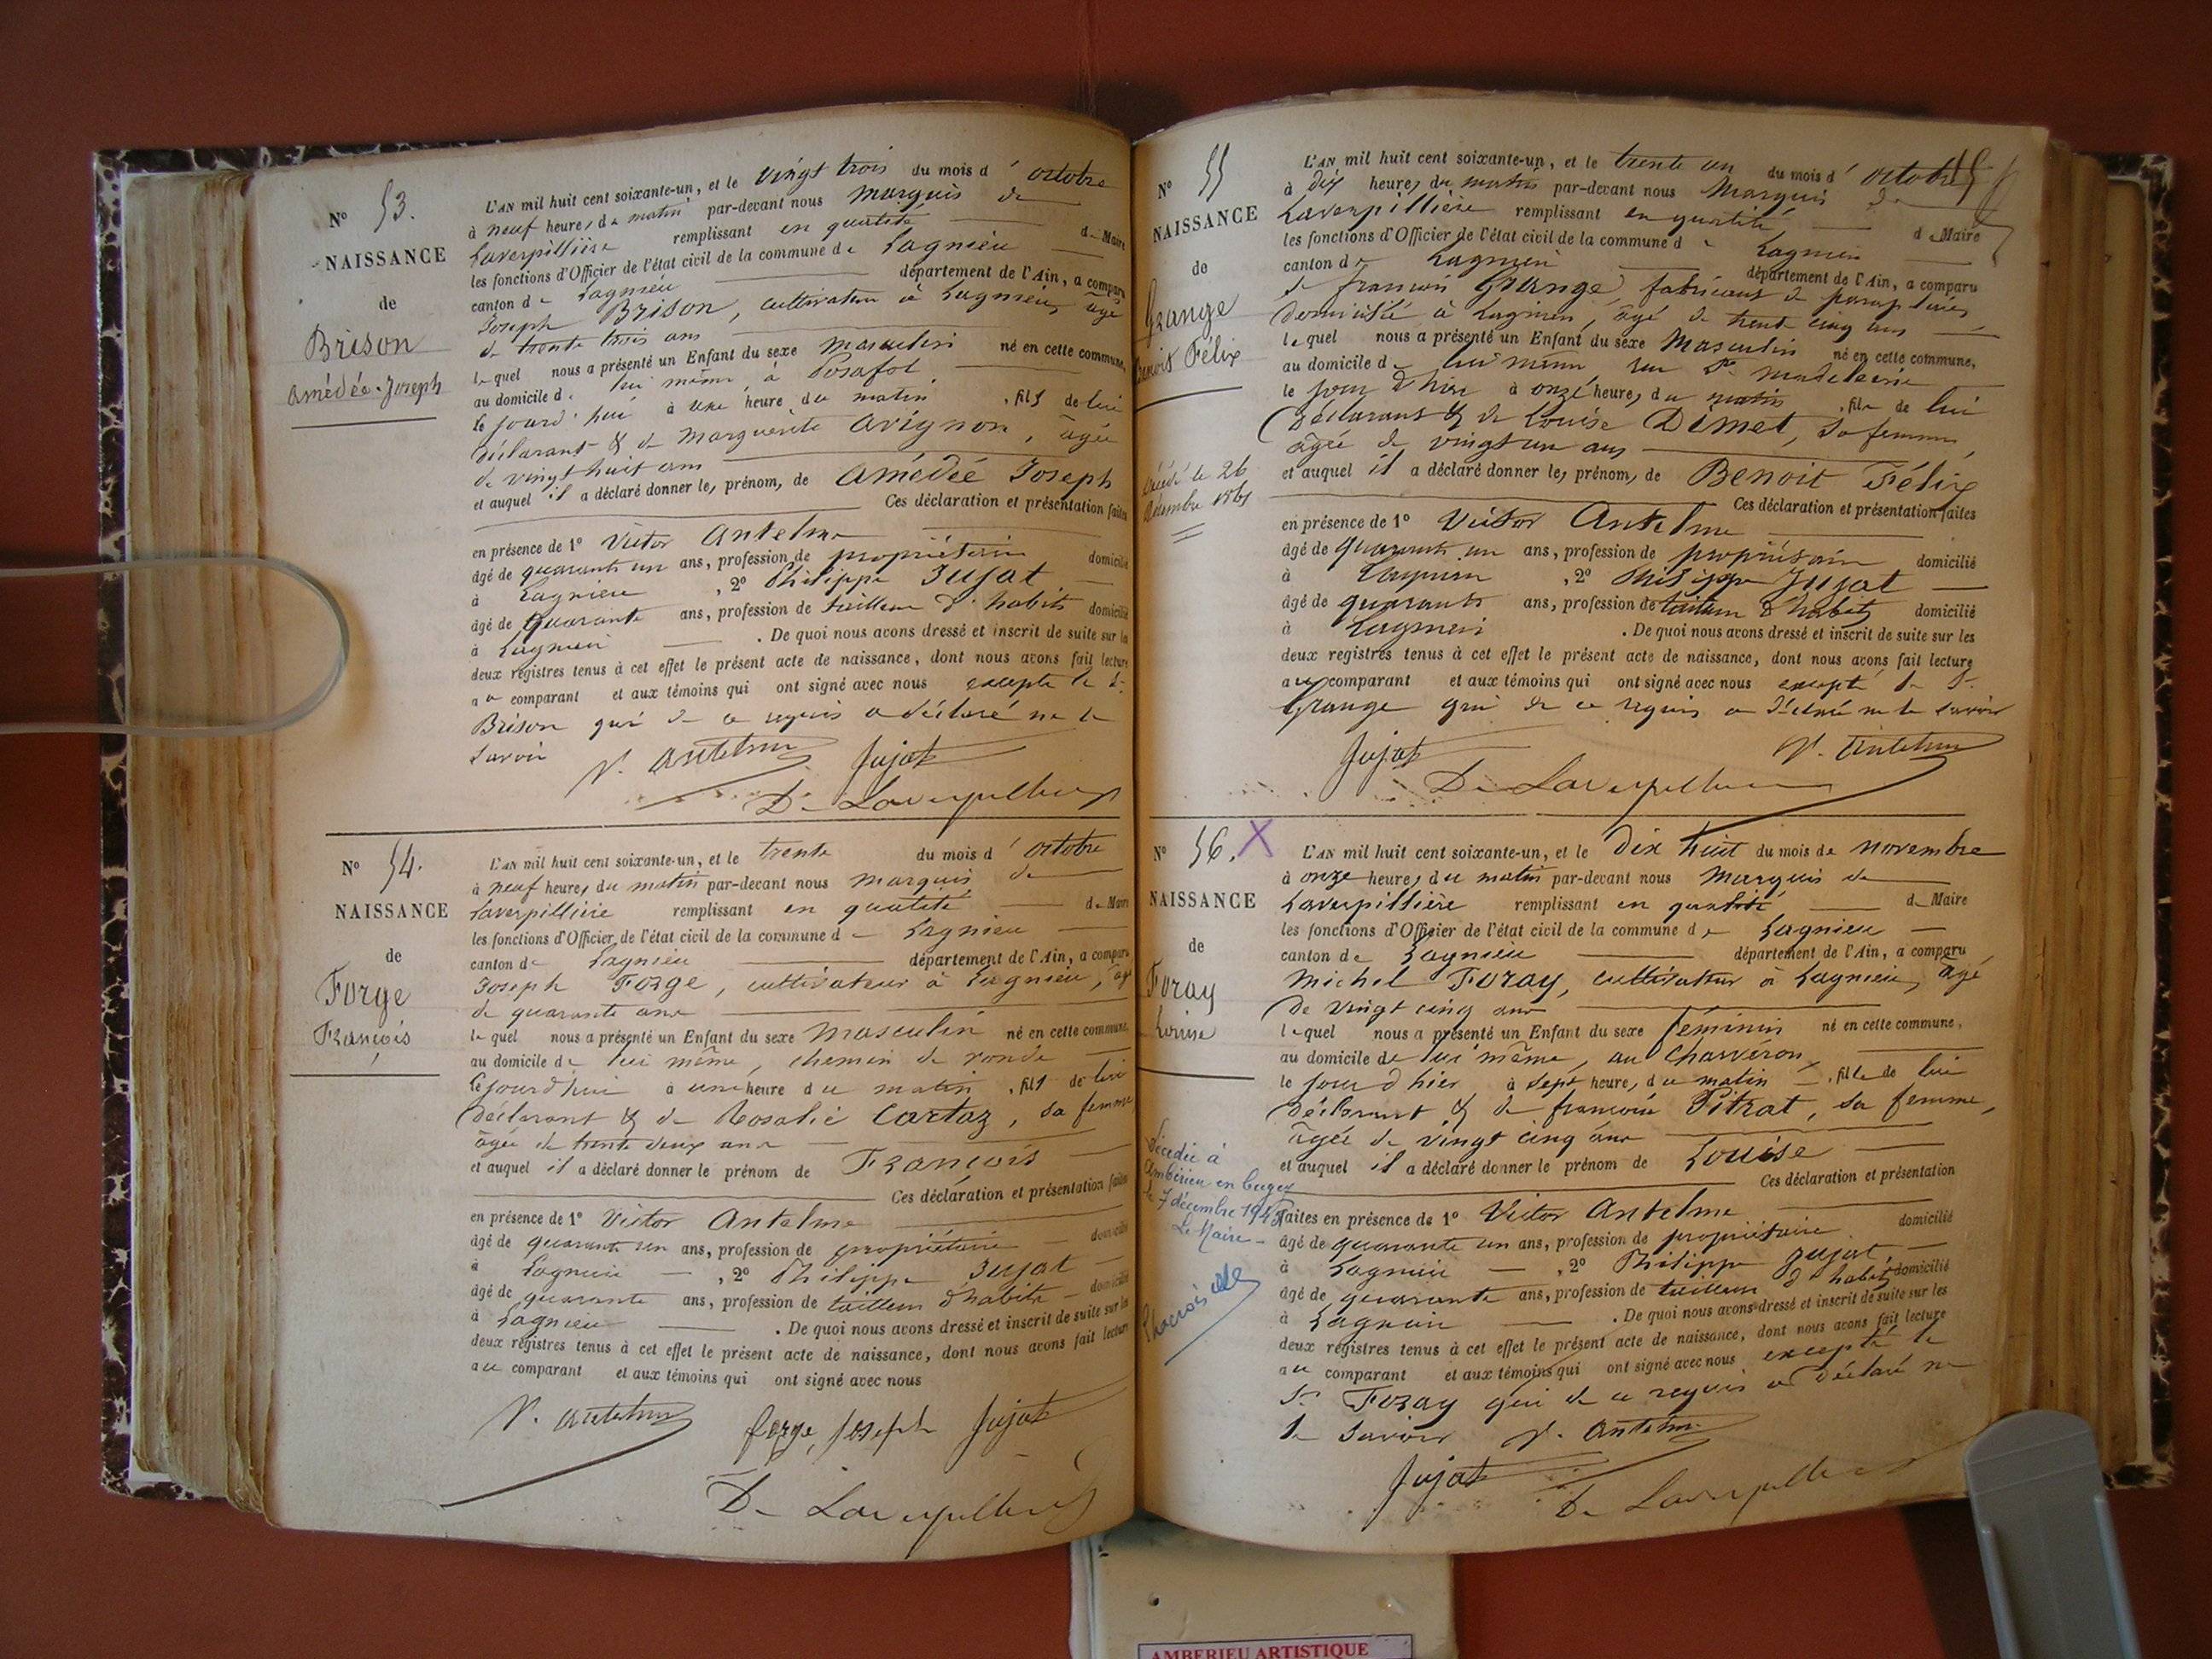 N° 53.
NAISSANCE
de
Brison
Amédée-Joseph
L'AN mil huit cent soixante-un, et le vingt trois du mois d'octobre
à neuf heures du matin par-devant nous Marquis de
Laverpillière remplissant en qualité de Maire
les fonctions d'Officier de l'état civil de la commune de Lagnieu
canton de Lagnieu département de l'Ain, a comparu
Joseph Brison, cultivateur à Lagnieu, âgé
de trente trois ans
lequel nous a présenté un Enfant du sexe masculin né en cette commune,
au domicile de lui même, à Posafol
le jourd'hui à une heure du matin, fils de lui
déclarant & de Marguerite Avignon, âgée
de vingt huit ans
et auquel il a déclaré donner les prénoms de Amédée Joseph
Ces déclaration et présentation faites
en présence de 1° Victor Antelme
âgé de quarante un ans, profession de propriétaire domicilié
à Lagnieu, 2° Philippe Jujat
âgé de quarante ans, profession de tailleur d'habits domicilié
à Lagnieu. De quoi nous avons dressé et inscrit de suite sur les
deux registres tenus à cet effet le présent acte de naissance, dont nous avons fait lecture
au comparant et aux témoins qui ont signé avec nous excepté le Sr
Brison qui de ce requis a déclaré ne le
savoir
V. Antelme Jujat
De Laverpilliere
N° 54.
NAISSANCE
de
Forge
François
L'AN mil huit cent soixante-un, et le trente du mois d'octobre
à neuf heures du matin par-devant nous Marquis de
Laverpillière remplissant en qualité de Maire
les fonctions d'Officier de l'état civil de la commune de Lagnieu
canton de Lagnieu département de l'Ain, a comparu
Joseph Forge, cultivateur à Lagnieu, âgé
de quarante ans
lequel nous a présenté un Enfant du sexe masculin né en cette commune,
au domicile de lui même, chemin de ronde
le jourd'hui à une heure du matin, fils de lui
déclarant & de Rosalie Cartaz, sa femme
âgée de trente deux ans
et auquel il a déclaré donner le prénom de François
Ces déclaration et présentation faites
en présence de 1° Victor Antelme
âgé de quarante un ans, profession de propriétaire domicilié
à Lagnieu, 2° Philippe Jujat
âgé de quarante ans, profession de tailleur d'habits domicilié
à Lagnieu. De quoi nous avons dressé et inscrit de suite sur les
deux registres tenus à cet effet le présent acte de naissance, dont nous avons fait lecture
au comparant et aux témoins qui ont signé avec nous
V. Antelme forge joseph Jujat
De Laverpilliere
N° 55
NAISSANCE
de
Grange
Benoit Félix
décédé le 26
décembre 1861
L'AN mil huit cent soixante-un, et le trente un du mois d'octobre
à dix heures du matin par-devant nous Marquis de
Laverpillière remplissant en qualité de Maire
les fonctions d'Officier de l'état civil de la commune de Lagnieu
canton de Lagnieu département de l'Ain, a comparu
Sr françois Grange, fabricant de parapluies
domicilié à Lagnieu, âgé de trente cinq ans
lequel nous a présenté un Enfant du sexe Masculin né en cette commune,
au domicile de lui même rue Ste madeleine
le jour d'hier à onze heures du matin, fils de lui
déclarant & de Louise Dimet, sa femme
âgée de vingt un ans
et auquel il a déclaré donner les prénoms de Benoit Félix
Ces déclaration et présentation faites
en présence de 1° Victor Antelme
âgé de quarante un ans, profession de propriétaire domicilié
à Lagnieu, 2° Philippe Jujat
âgé de quarante ans, profession de tailleur d'habits domicilié
à Lagnieu. De quoi nous avons dressé et inscrit de suite sur les
deux registres tenus à cet effet le présent acte de naissance, dont nous avons fait lecture
au comparant et aux témoins qui ont signé avec nous excepté le Sr
Grange qui de ce requis a déclaré ne le savoir
Jujat V. Antelme
De Laverpilliere
N° 56. X
NAISSANCE
de
Foray
Louise
Décédée à
Ambérieu en bugey
le 7 décembre
Le Maire
L'AN mil huit cent soixante-un, et le dix huit du mois de novembre
à onze heures du matin par-devant nous Marquis de
Laverpillière remplissant en qualité de Maire
les fonctions d'Officier de l'état civil de la commune de Lagnieu
canton de Lagnieu département de l'Ain, a comparu
Michel Foray, cultivateur à Lagnieu, âgé
de vingt cinq ans
lequel nous a présenté un Enfant du sexe féminin né en cette commune,
au domicile de lui même, au Charvéron,
le jour d'hier à sept heures du matin, fille de lui
déclarant & de françoise Pitrat, sa femme,
âgée de vingt cinq ans
et auquel il a déclaré donner le prénom de Louise
Ces déclaration et présentation
faites en présence de 1° Victor Antelme
âgé de quarante un ans, profession de propriétaire domicilié
à Lagnieu, 2° Philippe Jujat,
âgé de quarante ans, profession de tailleur d'habits domicilié
à Lagnieu. De quoi nous avons dressé et inscrit de suite sur les
deux registres tenus à cet effet le présent acte de naissance, dont nous avons fait lecture
au comparant et aux témoins qui ont signé avec nous excepté le
Sr Foray qui de ce requis a déclaré ne
le savoir V. Antelme
Jujat De Laverpilliere
AMBERIEU ARTISTIQUE